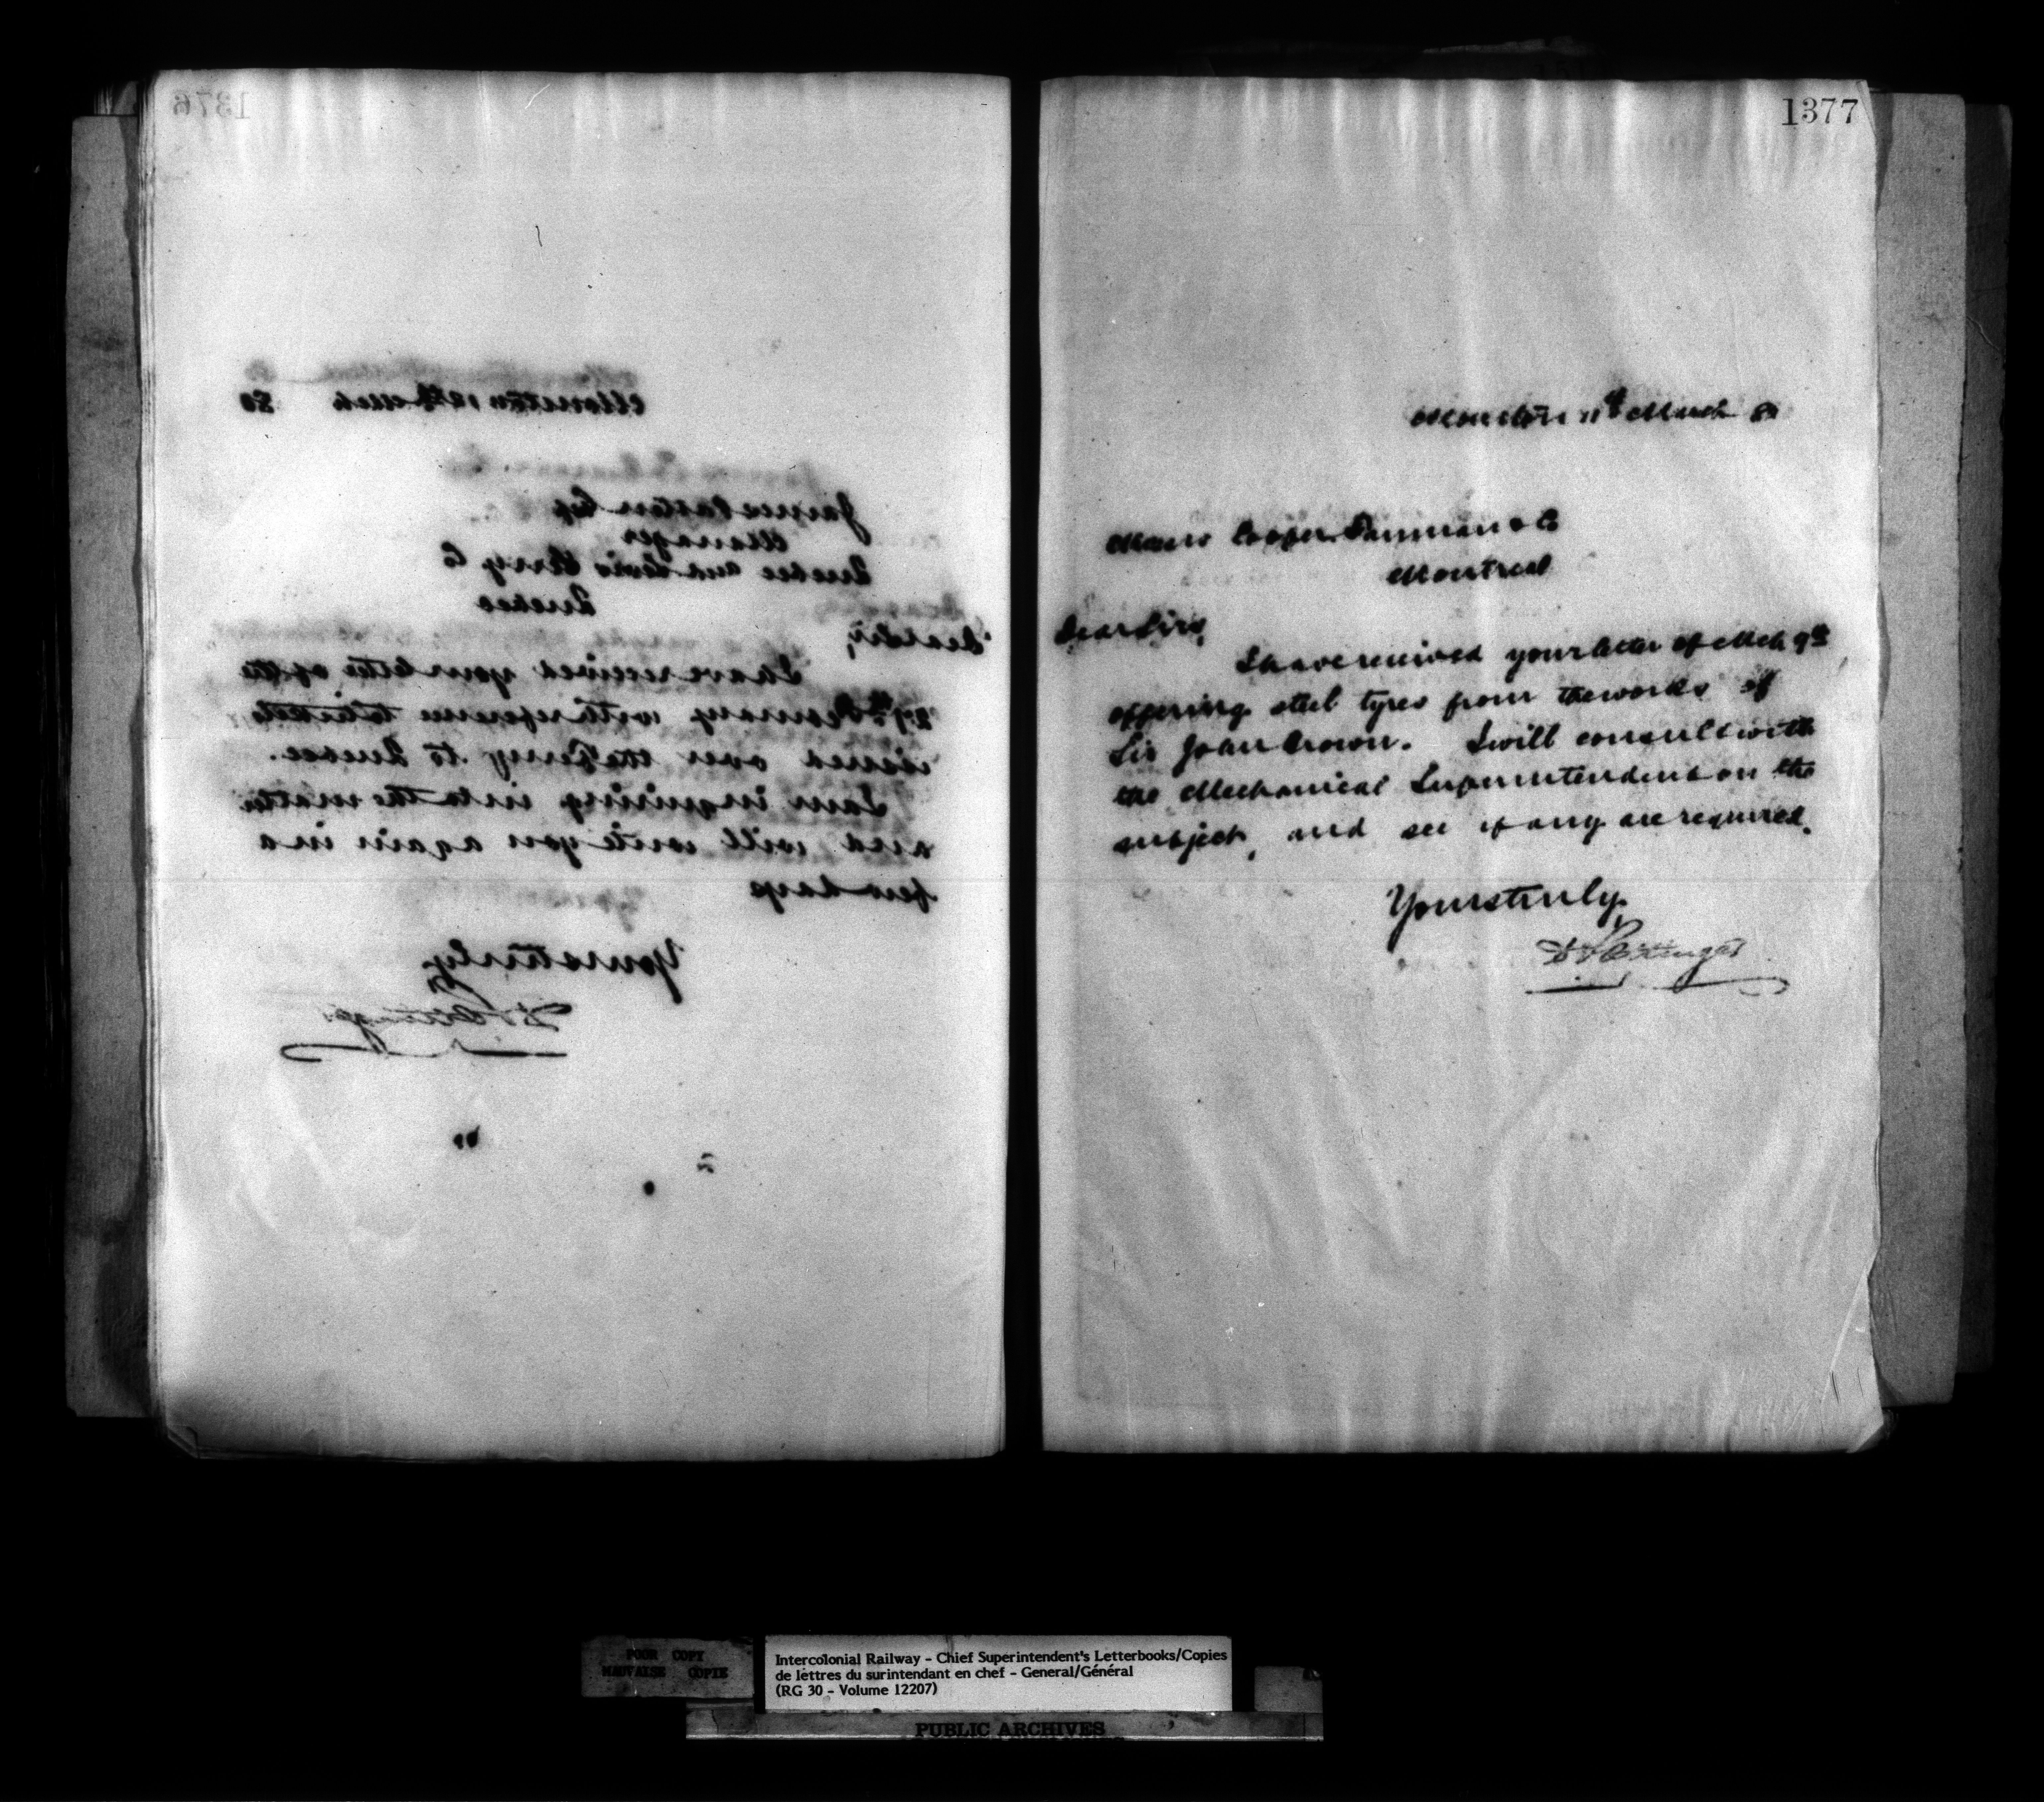 1376
Moncton 12th March 80
James Patton Esq
Manager
Quebec and Levis Ferry Co
Quebec
Dear Sir,
I have received your letter of the
27th February with reference to tickets
issued over the Ferry to Quebec.
I am inquiring into the matter
and will write you again in a
few days
Yours truly
D Pottinger
1377
Moncton 11th March 80
Messrs Cooper Fairman & Co
Montreal
Dear Sirs,
I have received your letter of Mch 9th
offering steel tyres from the works of
Sir John Brown. I will consult with
the Mechanical Superintendent on the
subject, and see if any are required.
Yours truly,
D Pottinger
POOR COPY
MAUVAISE COPIE
Intercolonial Railway - Chief Superintendent's Letterbooks/Copies
de lettres du surintendant en chef - General/Général
(RG 30 - Volume 12207)
PUBLIC ARCHIVES